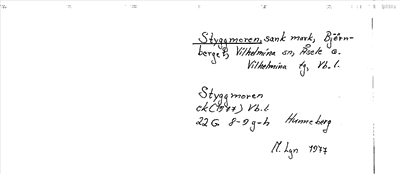 Styggmoren, sank mark, Björn-
berget, Vilhelmina sn, Åsele o.
Vilhelmina tg, Vb. l.
Styggmoren
ek (1977) Vb. l
22 G 8-9 g-h Hunneberg
M. Lgn 1977